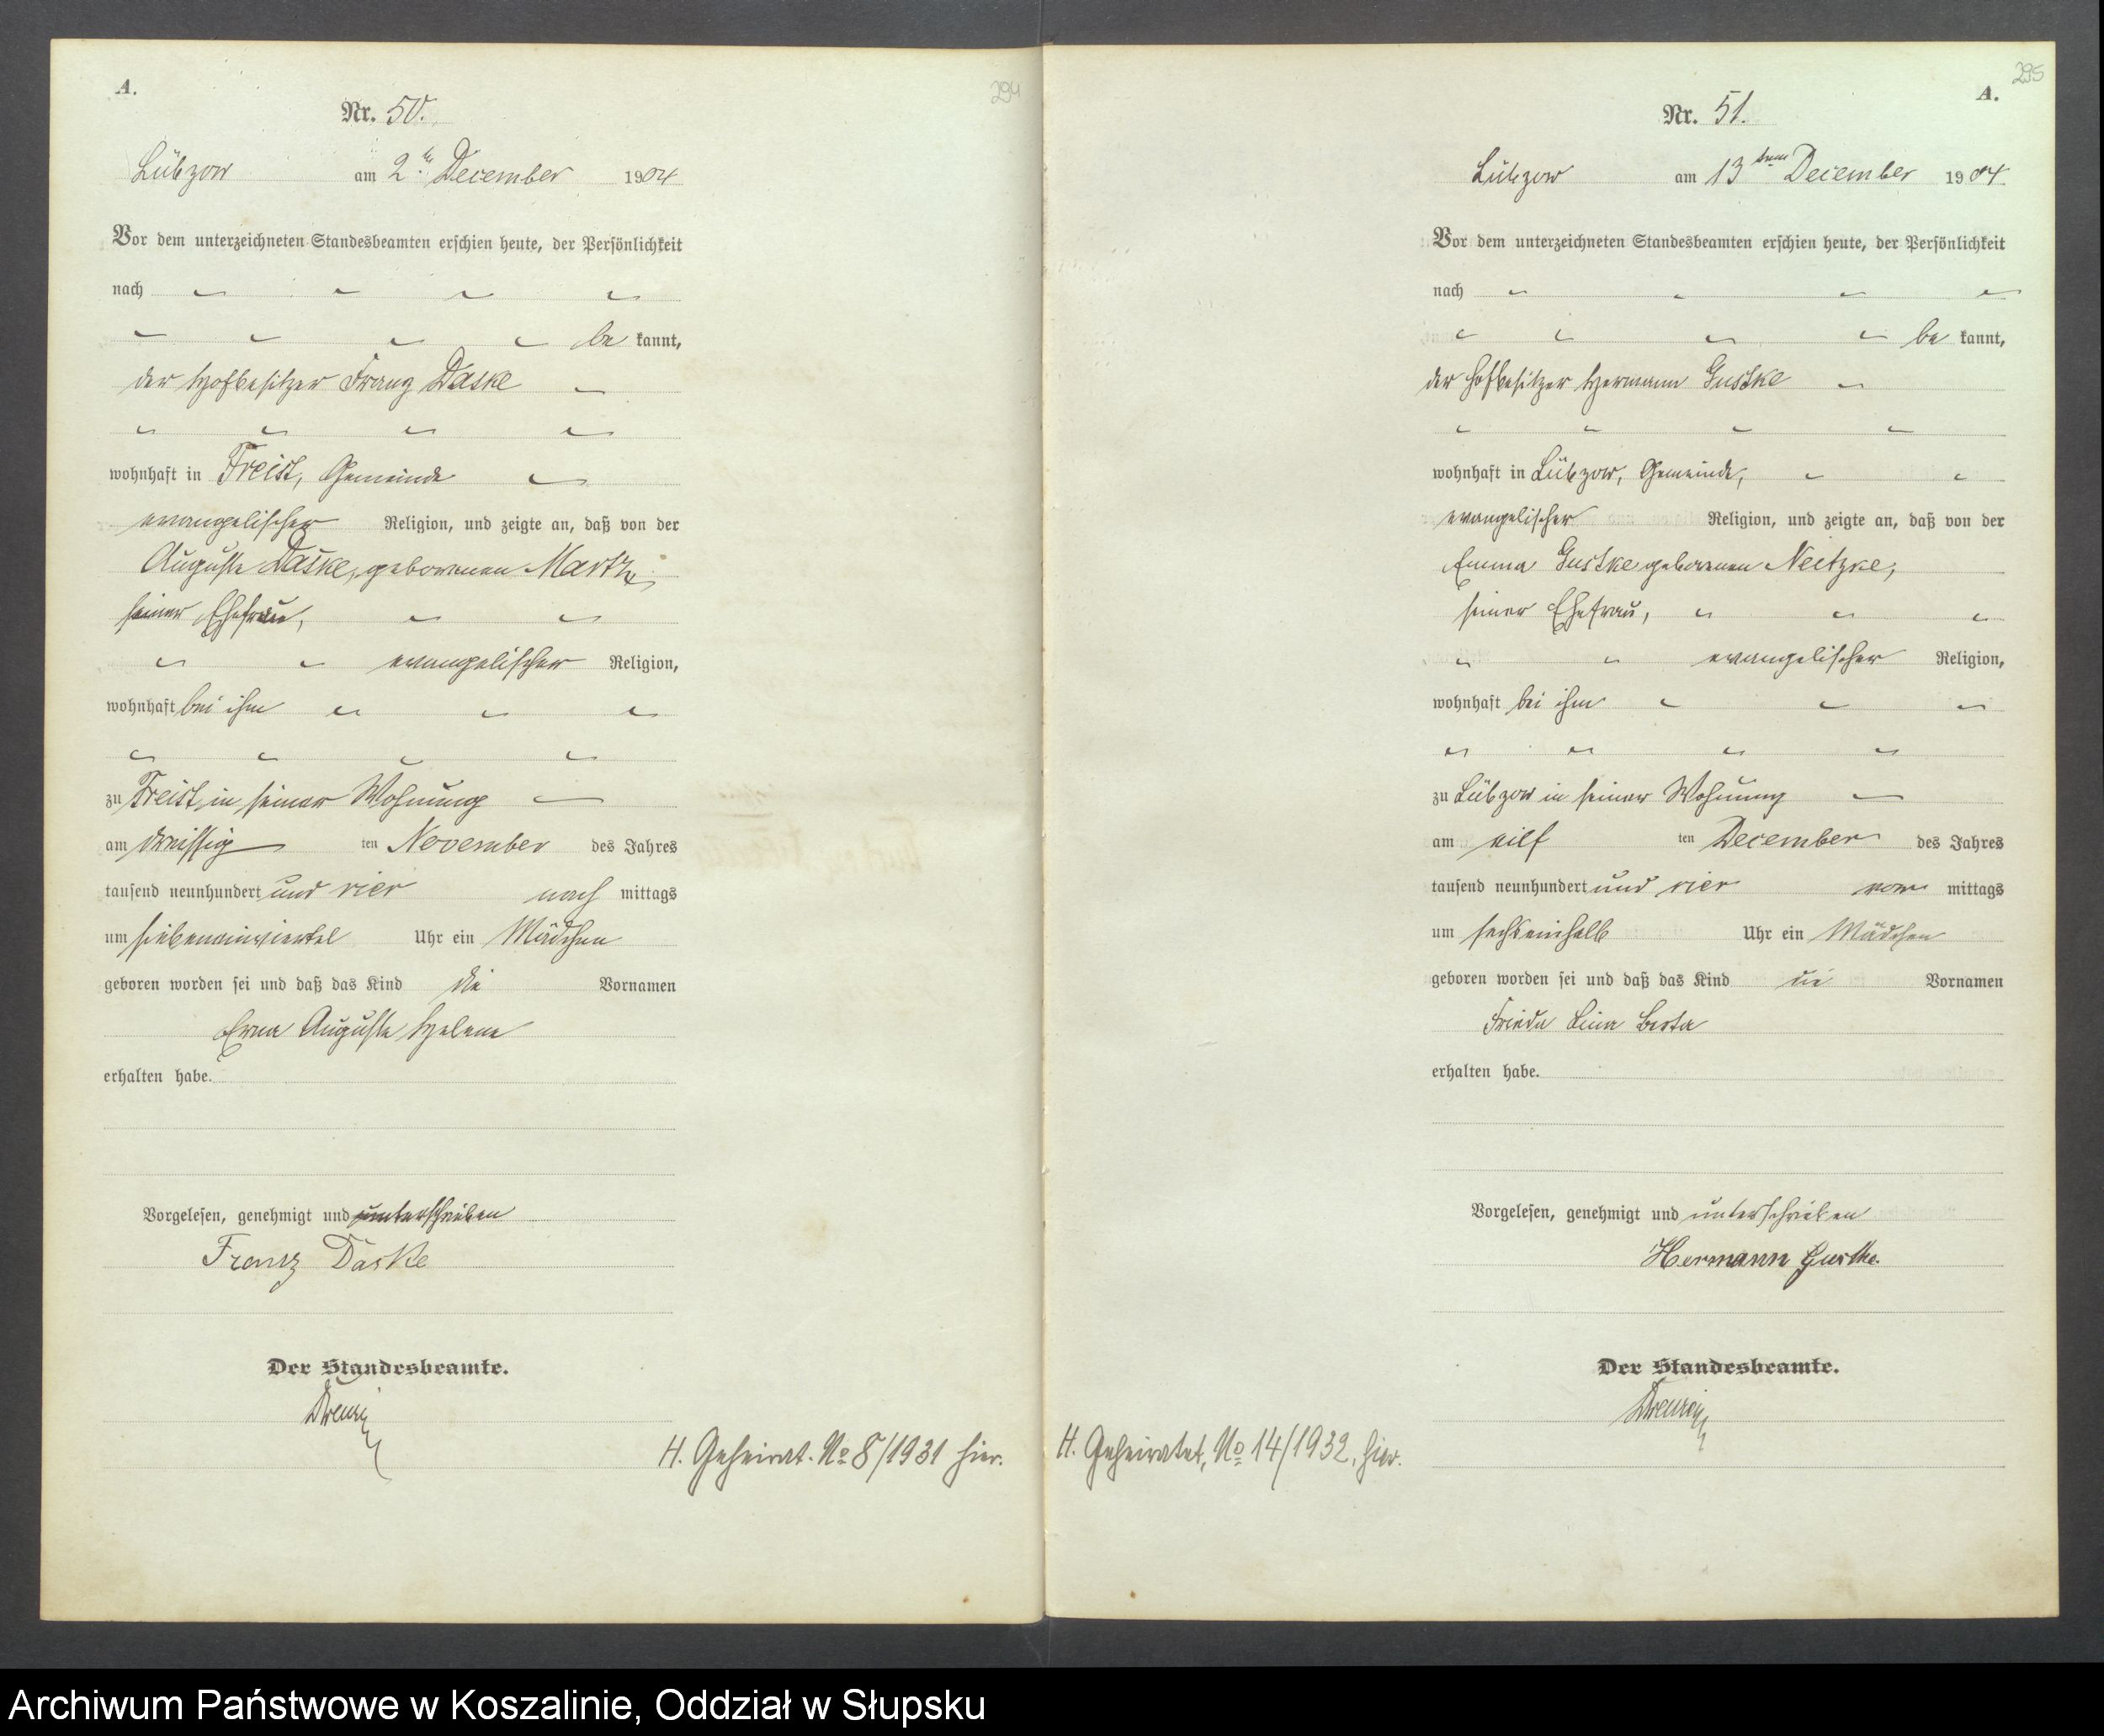 A.
294
Nr. 50.
Lübzow am 2ten December 1904
Vor dem unterzeichneten Standesbeamten erschien heute, der Persönlichkeit
nach
be kannt,
der Hofbesitzer Franz Daske
wohnhaft in Freist, Gemeinde
evangelischer Religion, und zeigte an, daß von der
Auguste Daske, geborenen
seiner Ehefrau,
evangelischer Religion,
wohnhaft bei ihm
zu Freist, in seiner Wohnung
am dreissig ten November des Jahres
tausend neunhundert und vier nach mittags
um siebeneinviertel Uhr ein Mädchen
geboren worden sei und daß das Kind die Vornamen
Erna Auguste Helene
erhalten habe.
Vorgelesen, genehmigt und unterschrieben
Franz Daske
Der Standesbeamte.
H. Geheirat. No 8/1931 hier.
295
A.
Nr. 51.
Lübzow am 13ten December 1904
Vor dem unterzeichneten Standesbeamten erschien heute, der Persönlichkeit
nach
be kannt,
der Hofbesitzer Hermann Gustke
wohnhaft in Lübzow, Gemeinde,
evangelischer Religion, und zeigte an, daß von der
Emma Gustke geborenen Neitzke,
seiner Ehefrau,
evangelischer Religion,
wohnhaft bei ihm
zu Lübzow in seiner Wohnung
am eilf ten December des Jahres
tausend neunhundert und vier vor mittags
um sechseinhalb Uhr ein Mädchen
geboren worden sei und daß das Kind die Vornamen
Frieda Lina Berta
erhalten habe.
Vorgelesen, genehmigt und unterschrieben
Hermann Gustke.
Der Standesbeamte.
H. Geheiratet, No 14/1932, hier.
Archiwum Państwowe w Koszalinie, Oddział w Słupsku